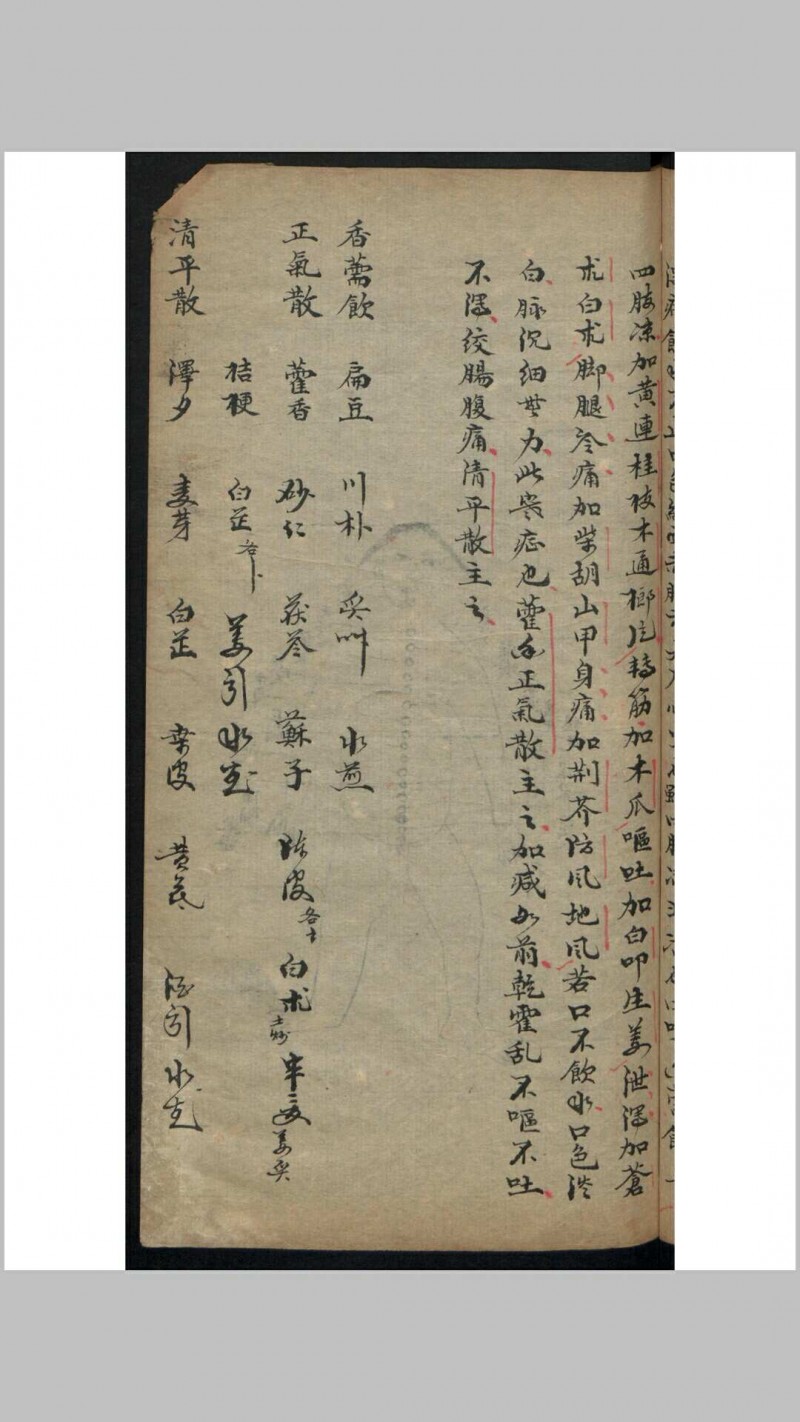 四肢凉加黄連桂枝木通榔片轉筋加木瓜嘔吐加白叩生姜泄瀉加蒼
朮白朮脚腿冷痛加柴胡山甲身痛加荆芥防風地風若口不飲水口色淡
白脉沉細無力此寒症也藿香正氣散主之加减如前乾霍乱不嘔不吐
不瀉绞腸腹痛清平散主之
香薷飲 扁豆 川朴 炙艸 水煎
正氣散 藿香 砂仁 茯苓 蘇子 陈皮 各 白朮 土炒 半夏 姜炙
桔梗 白芷 各 姜引 水煎
清平散 澤夕 麦芽 白芷 桑皮 黄芩 酒引 水煎